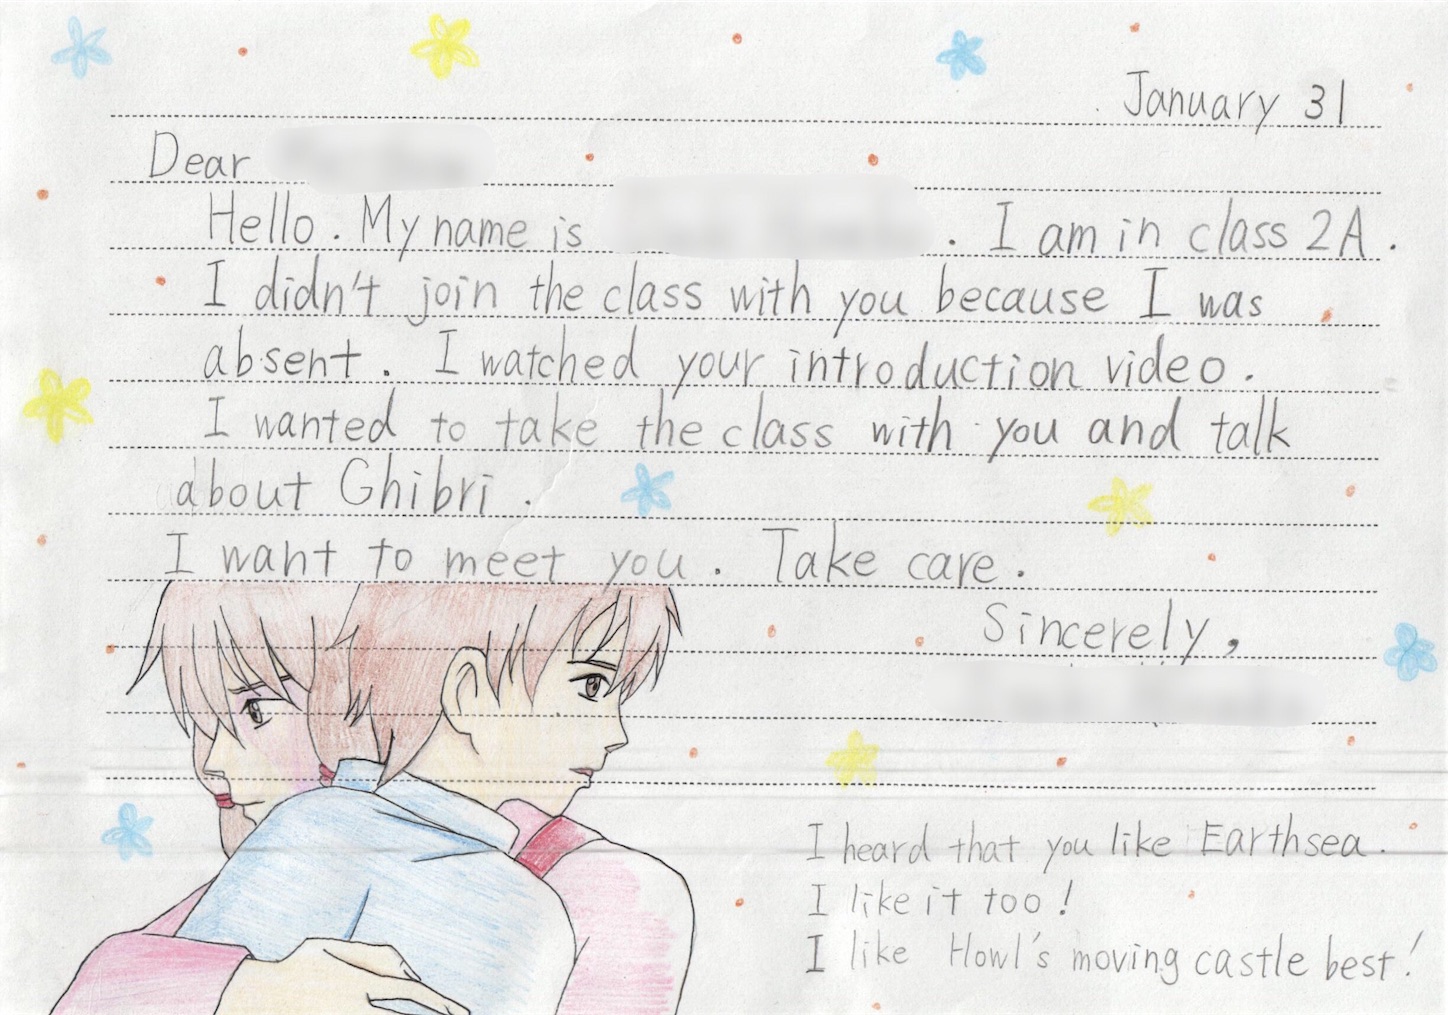 January 31
Dear
Hello. My name is . I am in class 2A.
I didn't join the class with you because I was
absent. I watched your introduction video.
I wanted to take the class with you and talk
about Ghibri.
I want to meet you. Take care.
Sincerely,
I heard that you like Earthsea.
I like it too!
I like Howl's moving castle best!